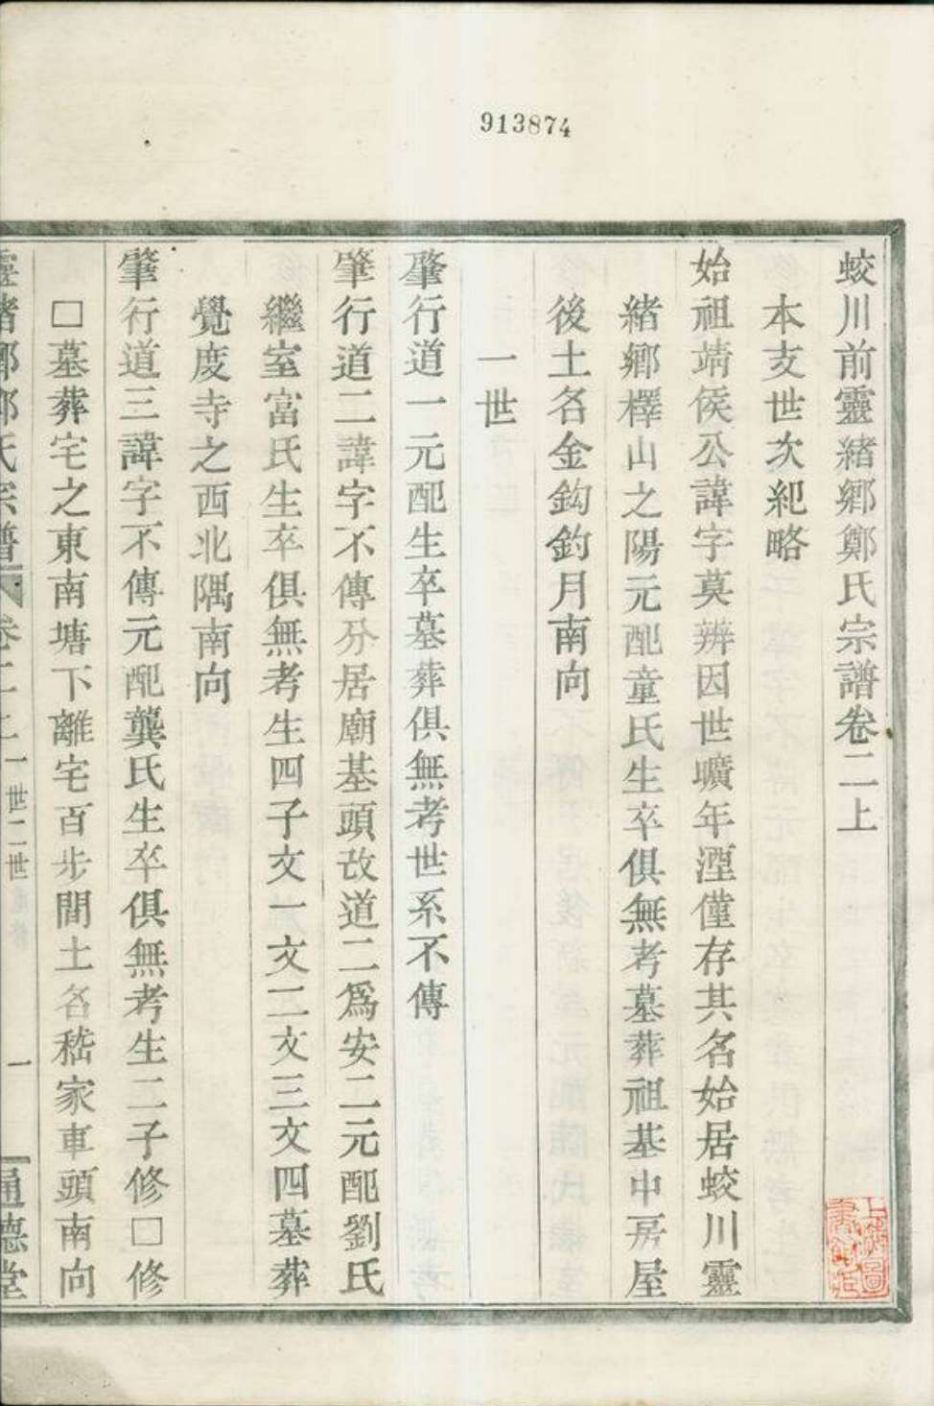 913874
蛟川前靈緒鄉鄭氏宗譜卷二上
本支世次紀略
始祖靖侯公諱字莫辨因世曠年湮僅存其名始居蛟川靈
緒鄉檡山之陽元配童氏生卒俱無考墓葬祖基中房屋
後土名金鈎釣月南向
一世
肇行道一元配生卒墓葬俱無考世系不傳
肇行道二諱字不傳分居廟基頭改道二爲安二元配劉氏
繼室富氏生卒俱無考生四子文一文二文三文四墓葬
覺度寺之西北隅南向
肇行道三諱字不傳元配龔氏生卒俱無考生二子修□修
□墓葬宅之東南塘下離宅百步間土名嵇家車頭南向
靈緒鄉鄭氏宗譜 卷二上 一世二世 一 通德堂
上海圖書館藏